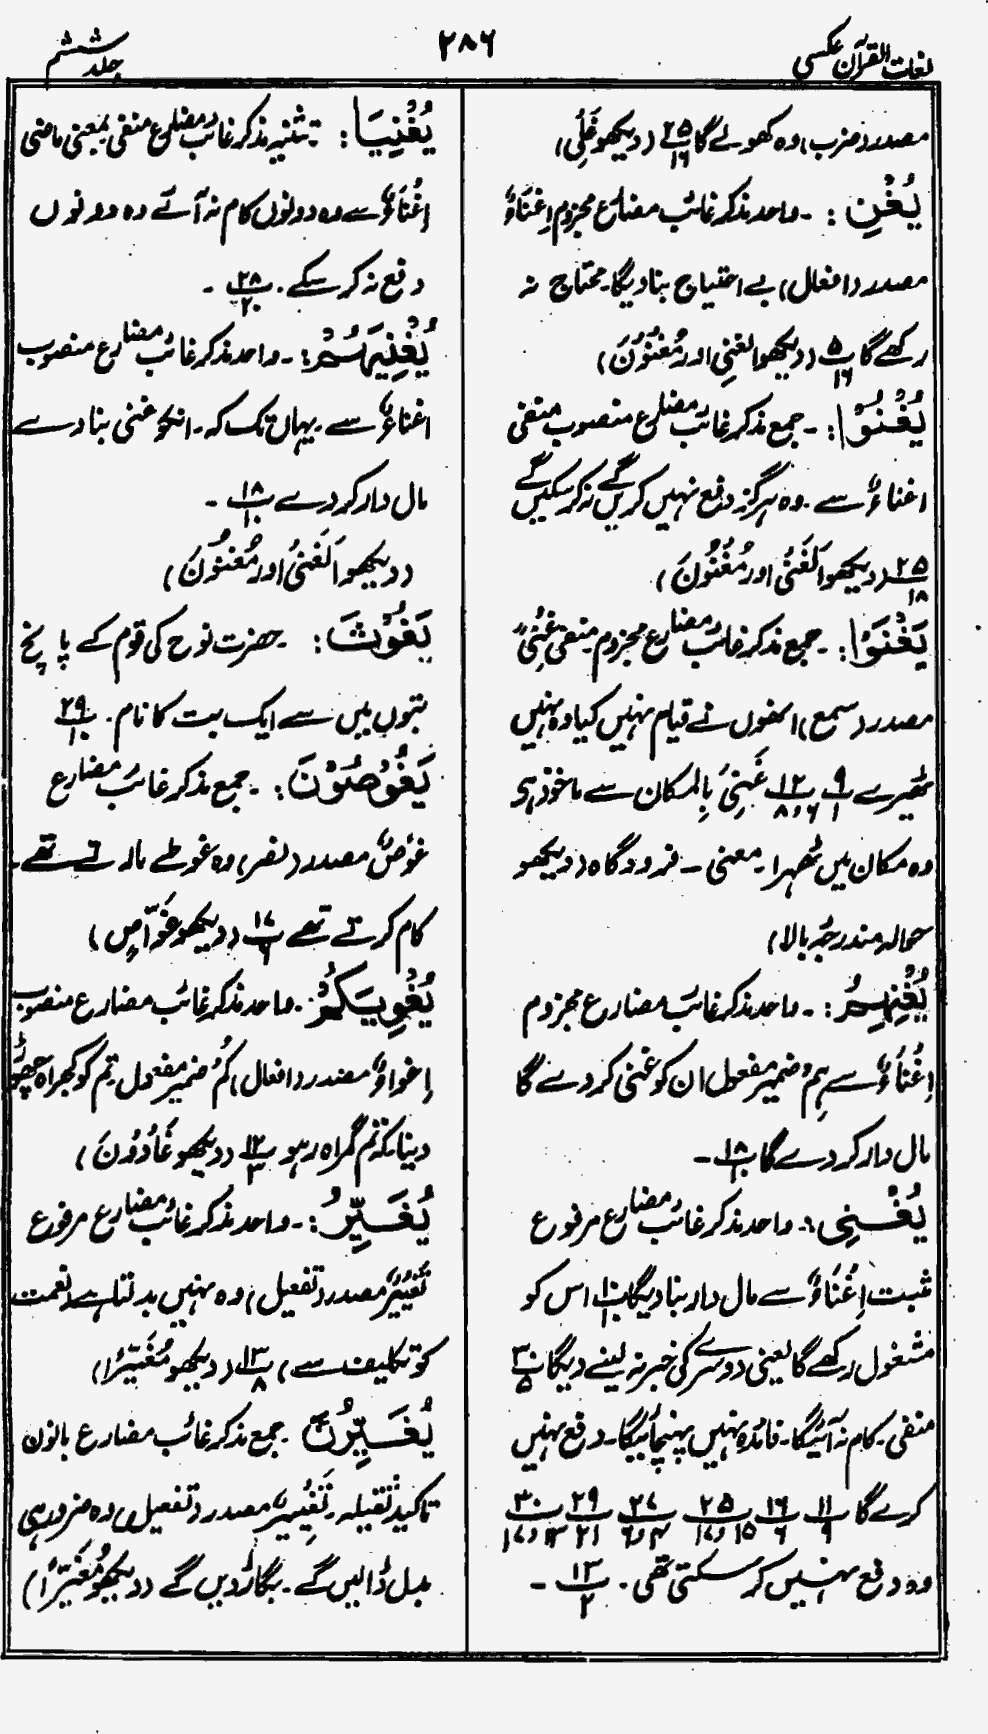 لغات القرآن عکسی
۲۸۶
جلد ششم
مصدر (ضرب) وہ کھولے گا ۲۵/۱۶ (دیکھو غَلْیِ)
یُغْنِ :۔ واحد مذکر غائب مضارع مجزوم اِغْنَاءٌ
مصدر (افعال) بے احتیاج بنا دیگا۔ محتاج نہ
رکھے گا ۵/۱۶ (دیکھو الغنِی اور مُغْنُوْنَ)
یُغْنُوْا :۔ جمع مذکر غائب مضارع منصوب منفی
اغناءٌ سے۔ وہ ہرگز دفع نہیں کریں گے نہ کر سکیں گے
۲۵/۱۸ (دیکھو اَلغَنِیُّ اور مُغْنُوْنَ)
یَغْنَوْا :۔ جمع مذکر غائب مضارع مجزوم۔ منفی غِنًی
مصدر (سمع) انھوں نے قیام نہیں کیا وہ نہیں
ٹھیرے ۹/۱ ۱۲/۸،۶ غَنِیَ بِالمکان سے ماخوذ ہی
وہ مکان میں ٹھہرا۔ معنی۔ فرودگاہ (دیکھو
حوالہ مندرجہ بالا)
یُغْنِہِمُ :۔ واحد مذکر غائب مضارع مجزوم
اِغْنَاءٌ سے ہِمْ ضمیر مفعول ان کو غنی کر دے گا
مال دار کر دے گا ۱۸/۱۰۔
یُغْنِی :۔ واحد مذکر غائب مضارع مرفوع
مثبت اِغْنَاءٌ سے مال دار بنا دیگا ۱۰/۱۰ اس کو
مشغول رکھے گا یعنی دوسرے کی خبر نہ لینے دیگا ۳۰/۵
منفی۔ کام نہ آئیگا۔ فائدہ نہیں پہنچائیگا۔ دفع نہیں
کرے گا ۱۱/۹ ۱۶/۶ ۲۵/۱۵ و ۱۷ ۲۷/۴ و ۶ ۲۹/۲۱ ۳۰/۱۳ و ۱۷
وہ دفع نہیں کر سکتی تھی۔ ۱۳/۲۔
یُغْنِیَا :۔ تثنیہ مذکر غائب مضارع منفی بمعنی ماضی
اِغْنَاءٌ سے وہ دونوں کام نہ آئے وہ دونوں
دفع نہ کر سکے۔ ۲۸/۲۰۔
یُغْنِیَہُمُ :۔ واحد مذکر غائب مضارع منصوب
اغناءٌ سے۔ یہاں تک کہ۔ انکو غنی بنا دے
مال دار کر دے ۱۸/۱۰۔
(دیکھو اَلغَنِیُّ اور مُغْنُوْنَ)
یَغُوْثَ :۔ حضرت نوح کی قوم کے پانچ
بتوں میں سے ایک بت کا نام۔ ۲۹/۱۰
یَغُوْصُوْنَ :۔ جمع مذکر غائب مضارع
غَوْصٌ مصدر (نصر) وہ غوطے مارتے تھے۔
کام کرتے تھے ۱۷/۶ (دیکھو غَوَّاصٍ)
یُغْوِیَکُمْ :۔ واحد مذکر غائب مضارع منصوب
اِغواءٌ مصدر (افعال) کُمْ ضمیر مفعول تم کو گمراہ چھوڑ
دینا کہ تم گمراہ رہو ۱۲/۳ (دیکھو غَاوُوْنَ)
یُغَیِّرُ :۔ واحد مذکر غائب مضارع مرفوع
تَغْیِیْرٌ مصدر (تفعیل) وہ نہیں بدلتا ہے (نعمت
کو تکلیف سے) ۱۳/۸ (دیکھو مُغَیِّرًا)
یُغَیِّرُنَّ ۔ جمع مذکر غائب مضارع بانون
تاکید ثقیلہ۔ تَغْیِیْرٌ مصدر (تفعیل) وہ ضرور ہی
بدل ڈالیں گے۔ بگاڑ دیں گے (دیکھو مُغَیِّرًا)